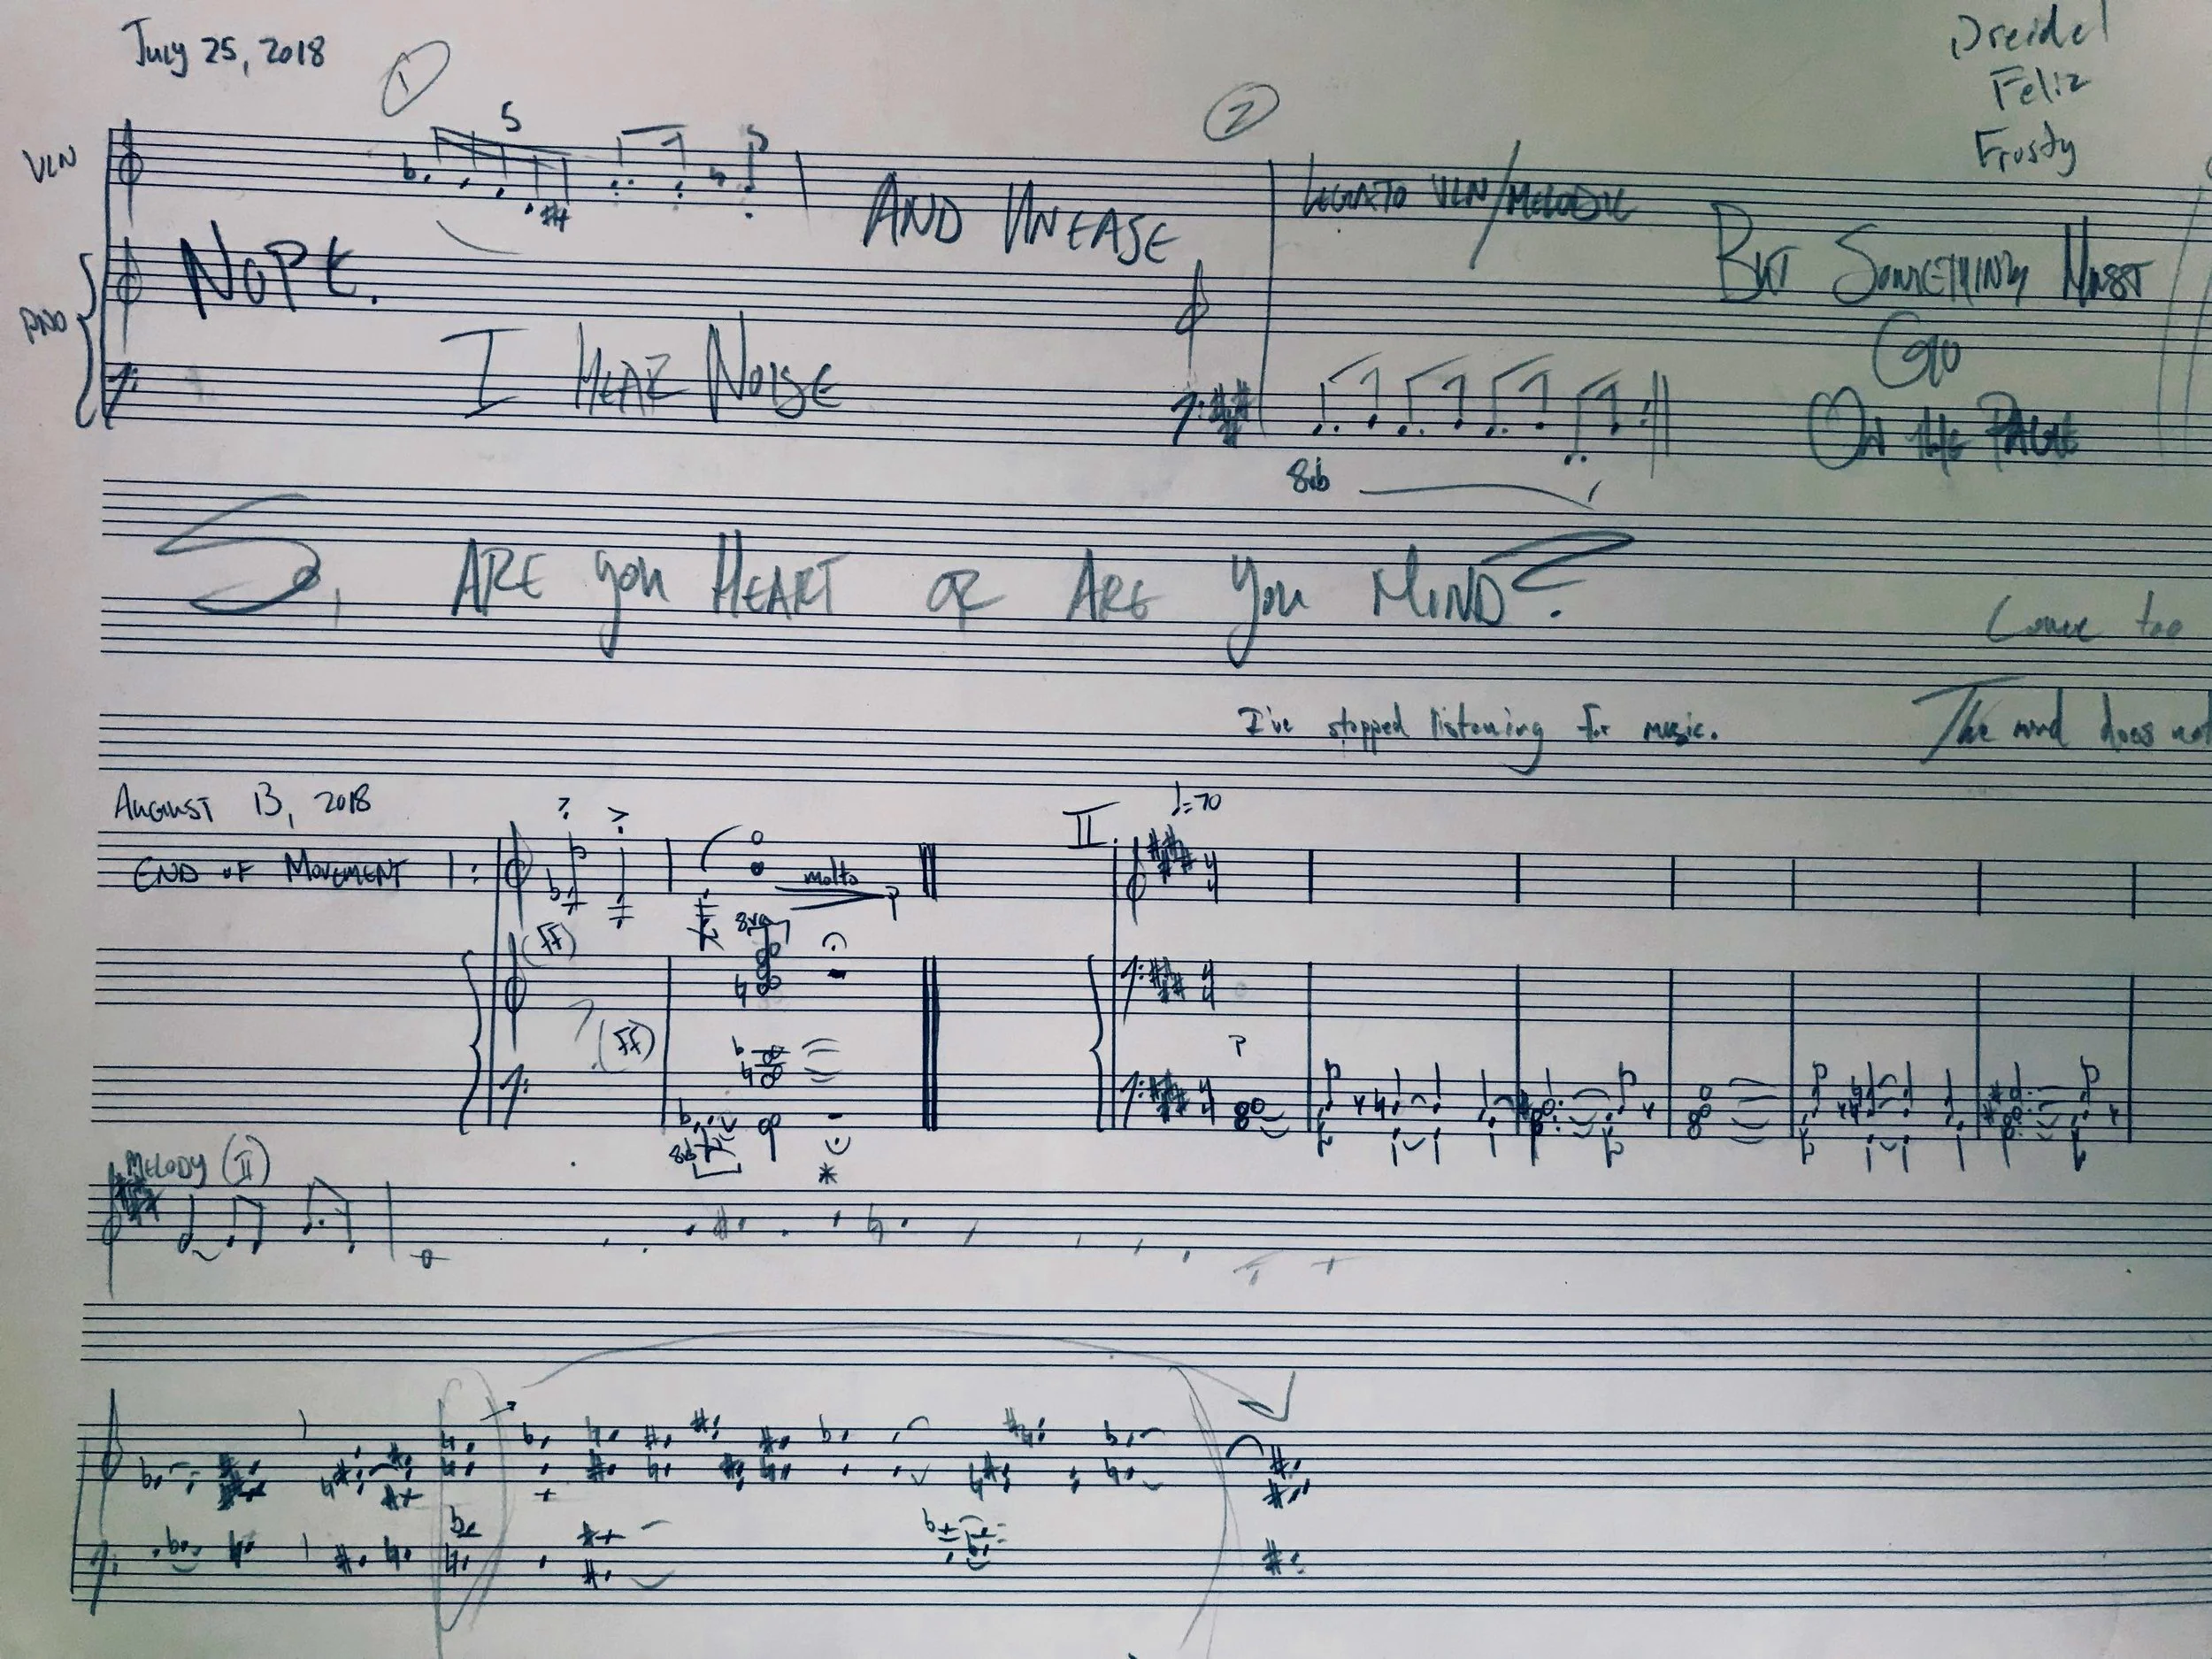 July 25, 2018
Dreidel
Feliz
Frosty
1
2
5
VLN
LEGATO VLN/MELODIC
AND UNEASE
NOPE.
BUT SOMETHING MUST
PNO
GO
I HEAR NOISE
ON THE PAGE
8vb
S, ARE YOU HEART OR ARE YOU MIND?
Come too
I've stopped listening for music.
The mind does not
AUGUST 13, 2018
II.
♩=70
END OF MOVEMENT
molto
p
8va
(ff)
(ff)
p
4
4
4
4
4
4
8vb
MELODY (II)